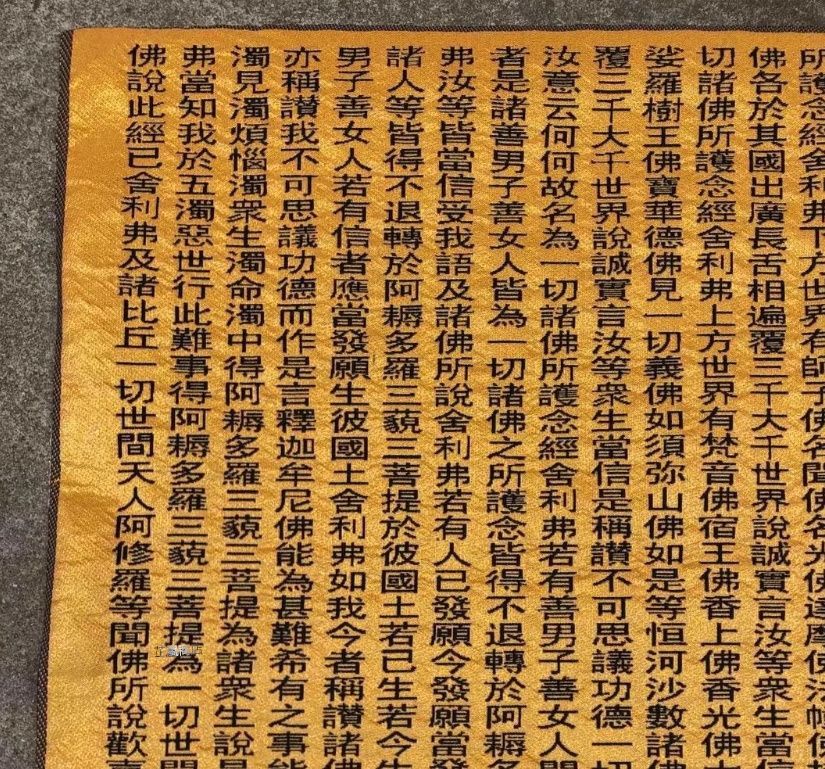 所護念經舍利弗下方世界有師子佛名聞佛名光佛達摩佛法幢佛
佛各於其國出廣長舌相遍覆三千大千世界說誠實言汝等衆生當信
切諸佛所護念經舍利弗上方世界有梵音佛宿王佛香上佛香光佛大
娑羅樹王佛寶華德佛見一切義佛如須弥山佛如是等恒河沙數諸佛
覆三千大千世界說誠實言汝等衆生當信是稱讚不可思議功德一切
汝意云何何故名為一切諸佛所護念經舍利弗若有善男子善女人聞
者是諸善男子善女人皆為一切諸佛之所護念皆得不退轉於阿耨多
弗汝等皆當信受我語及諸佛所說舍利弗若有人已發願今發願當發
諸人等皆得不退轉於阿耨多羅三藐三菩提於彼國土若已生若今生
男子善女人若有信者應當發願生彼國土舍利弗如我今者稱讚諸佛
亦稱讚我不可思議功德而作是言釋迦牟尼佛能為甚難希有之事能
濁見濁煩惱濁衆生濁命濁中得阿耨多羅三藐三菩提為諸衆生說是
弗當知我於五濁惡世行此難事得阿耨多羅三藐三菩提為一切世間
佛說此經已舍利弗及諸比丘一切世間天人阿修羅等聞佛所說歡喜